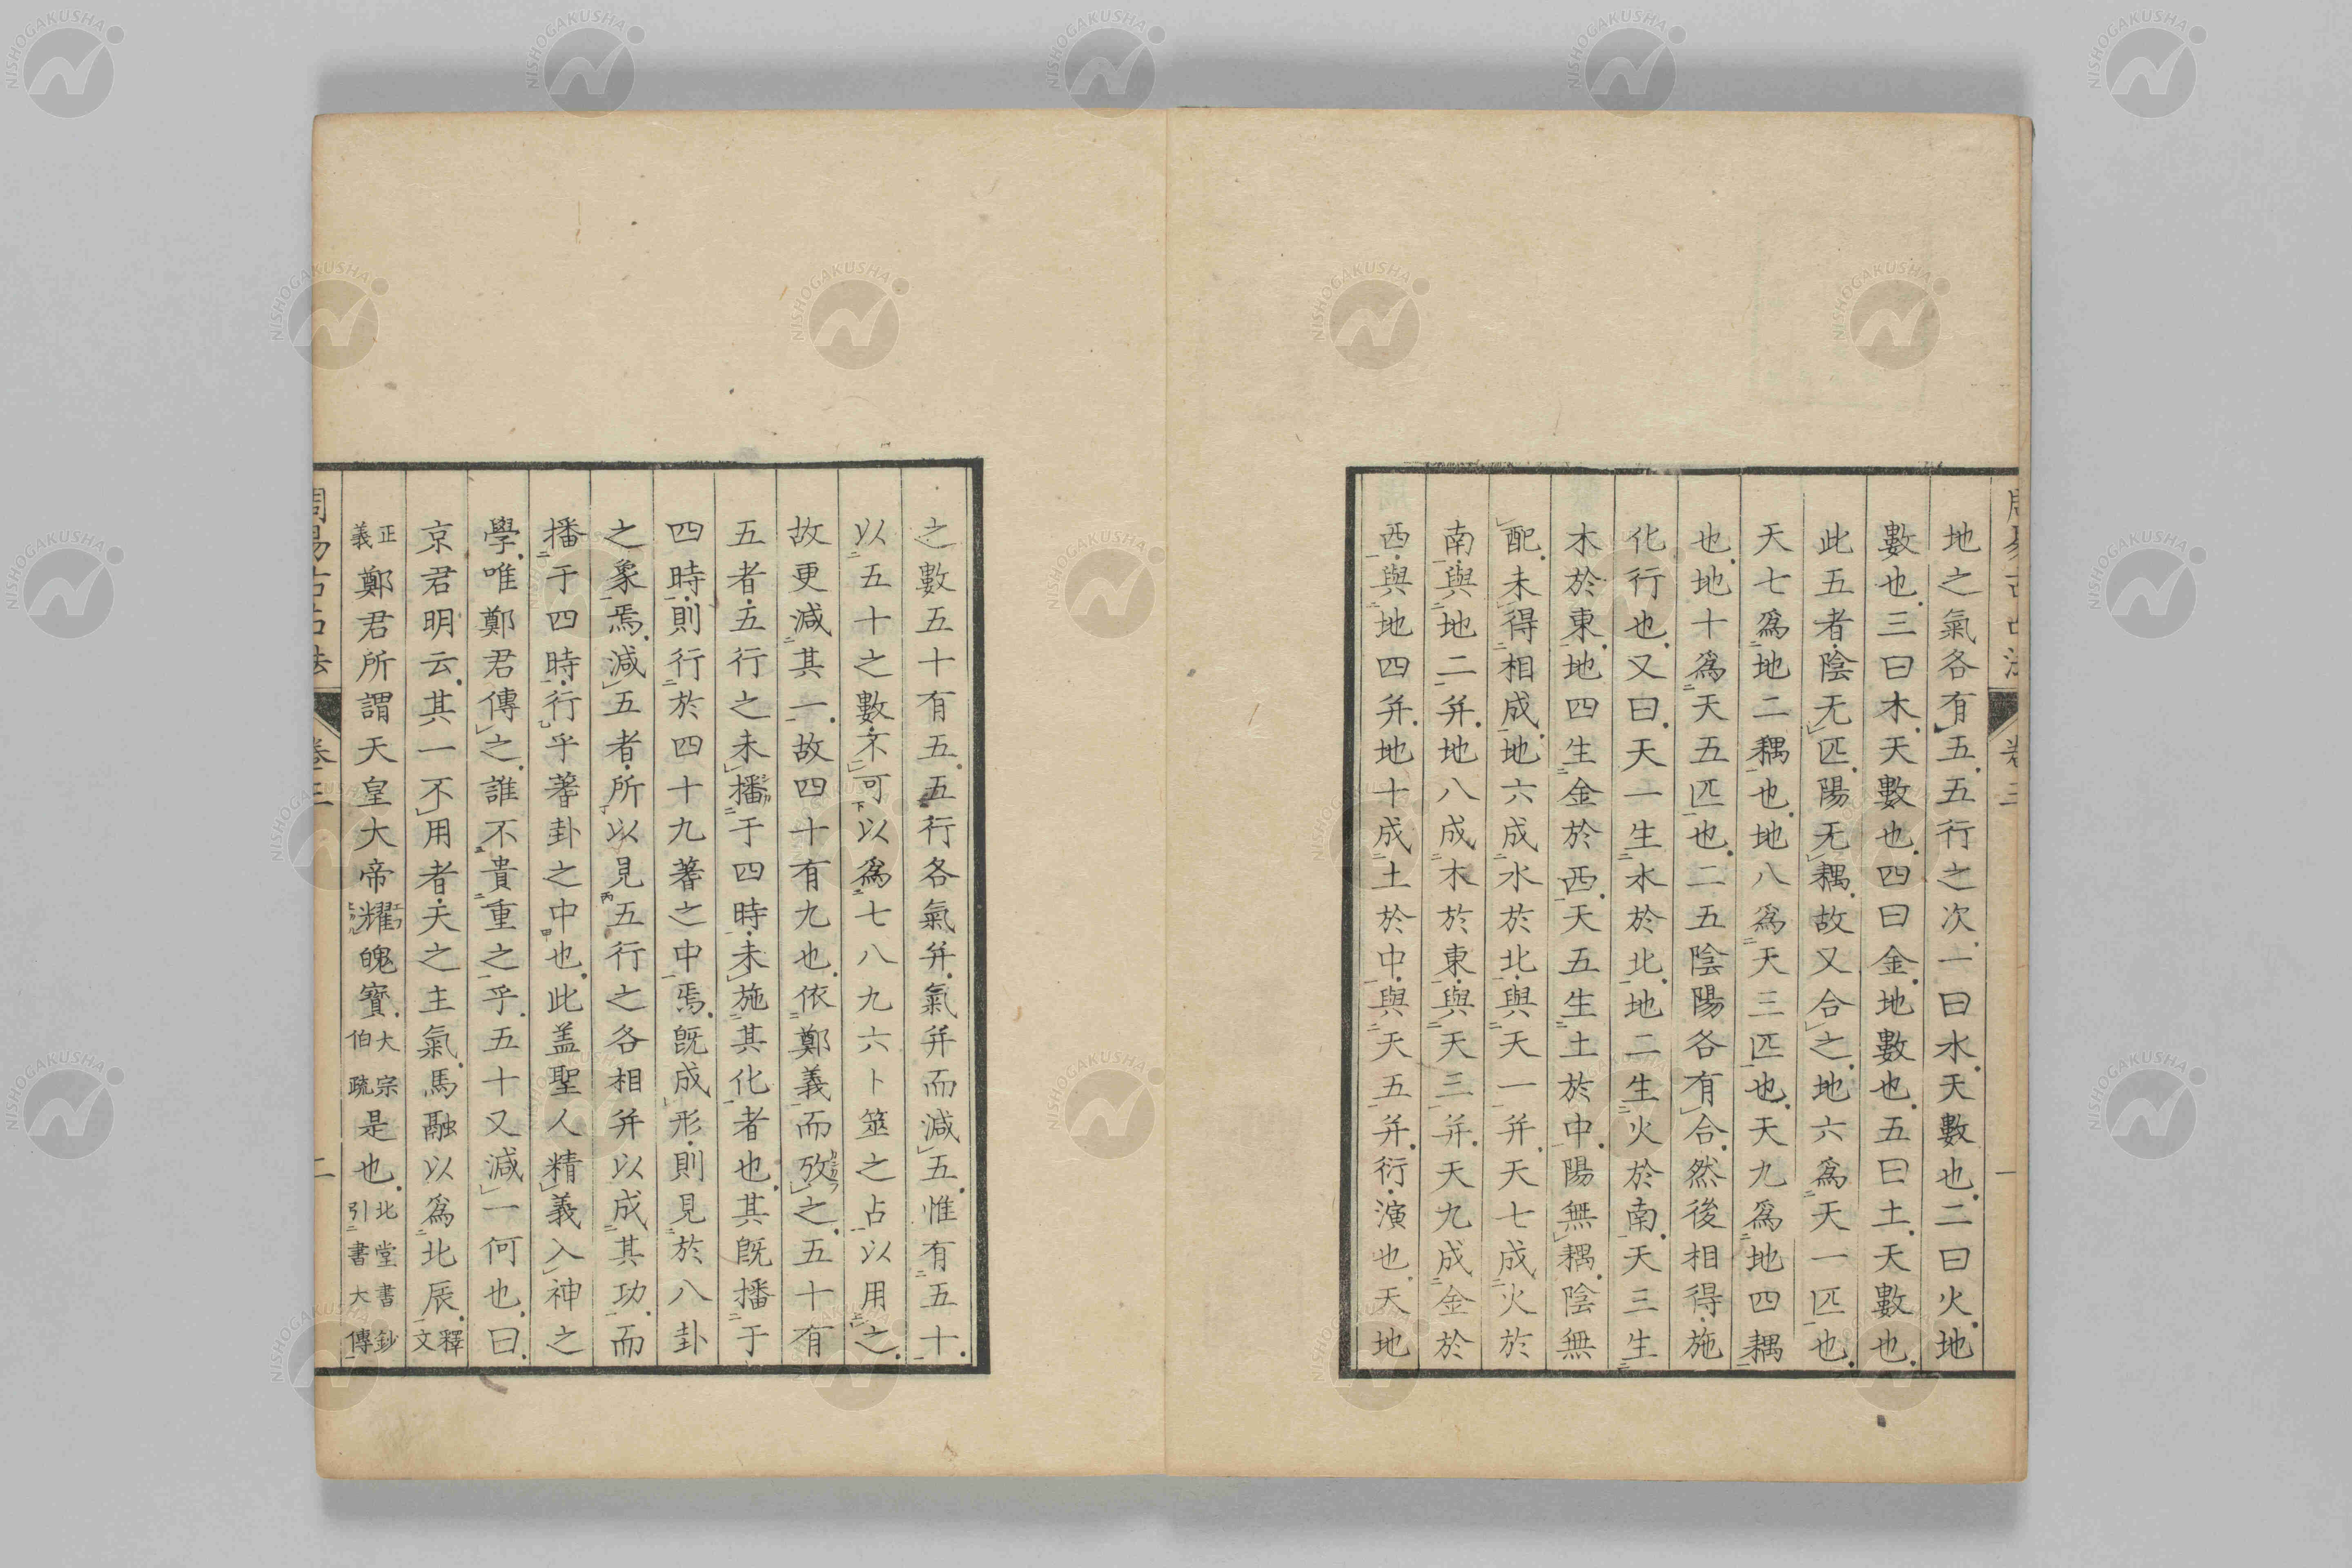 地之氣各有五五行之次一曰水天數也二曰火地
數也三曰木天數也四曰金地數也五曰土天數也
此五者陰无匹陽无耦故又合之地六爲天一匹也
天七爲地二耦也地八爲天三匹也天九爲地四耦
也地十爲天五匹也二五陰陽各有合然後相得施
化行也又曰天一生水於北地二生火於南天三生
木於東地四生金於西天五生土於中陽無耦陰無
配未得相成地六成水於北與天一并天七成火於
南與地二并地八成木於東與天三并天九成金於
西與地四并地十成土於中與天五并衍演也天地
之數五十有五五行各氣并氣并而減五惟有五十
以五十之數不可以爲七八九六卜筮之占以用之
故更減其一故四十有九也依鄭義而攷之五十有
五者五行之未播于四時未施其化者也其既播于
四時則行於四十九蓍之中焉既成形則見於八卦
之象焉減五者所以見五行之各相并以成其功而
播于四時行乎蓍卦之中也此盖聖人精義入神之
學唯鄭君傳之誰不貴重之乎五十又減一何也曰
京君明云其一不用者天之主氣馬融以爲北辰釋文
正義鄭君所謂天皇大帝耀魄寳大宗伯疏是也北堂書鈔引書大傳
周易古占法 卷三 二
NISHOGAKUSHA